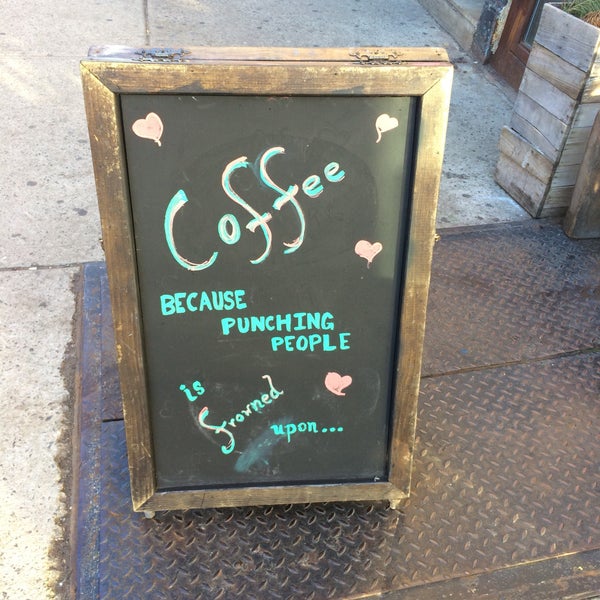 Coffee
BECAUSE
PUNCHING
PEOPLE
is frowned upon...